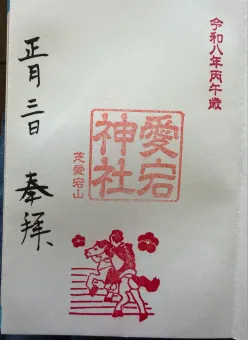 令和八年丙午歳
愛宕
神社
芝愛宕山
奉拝
正月三日